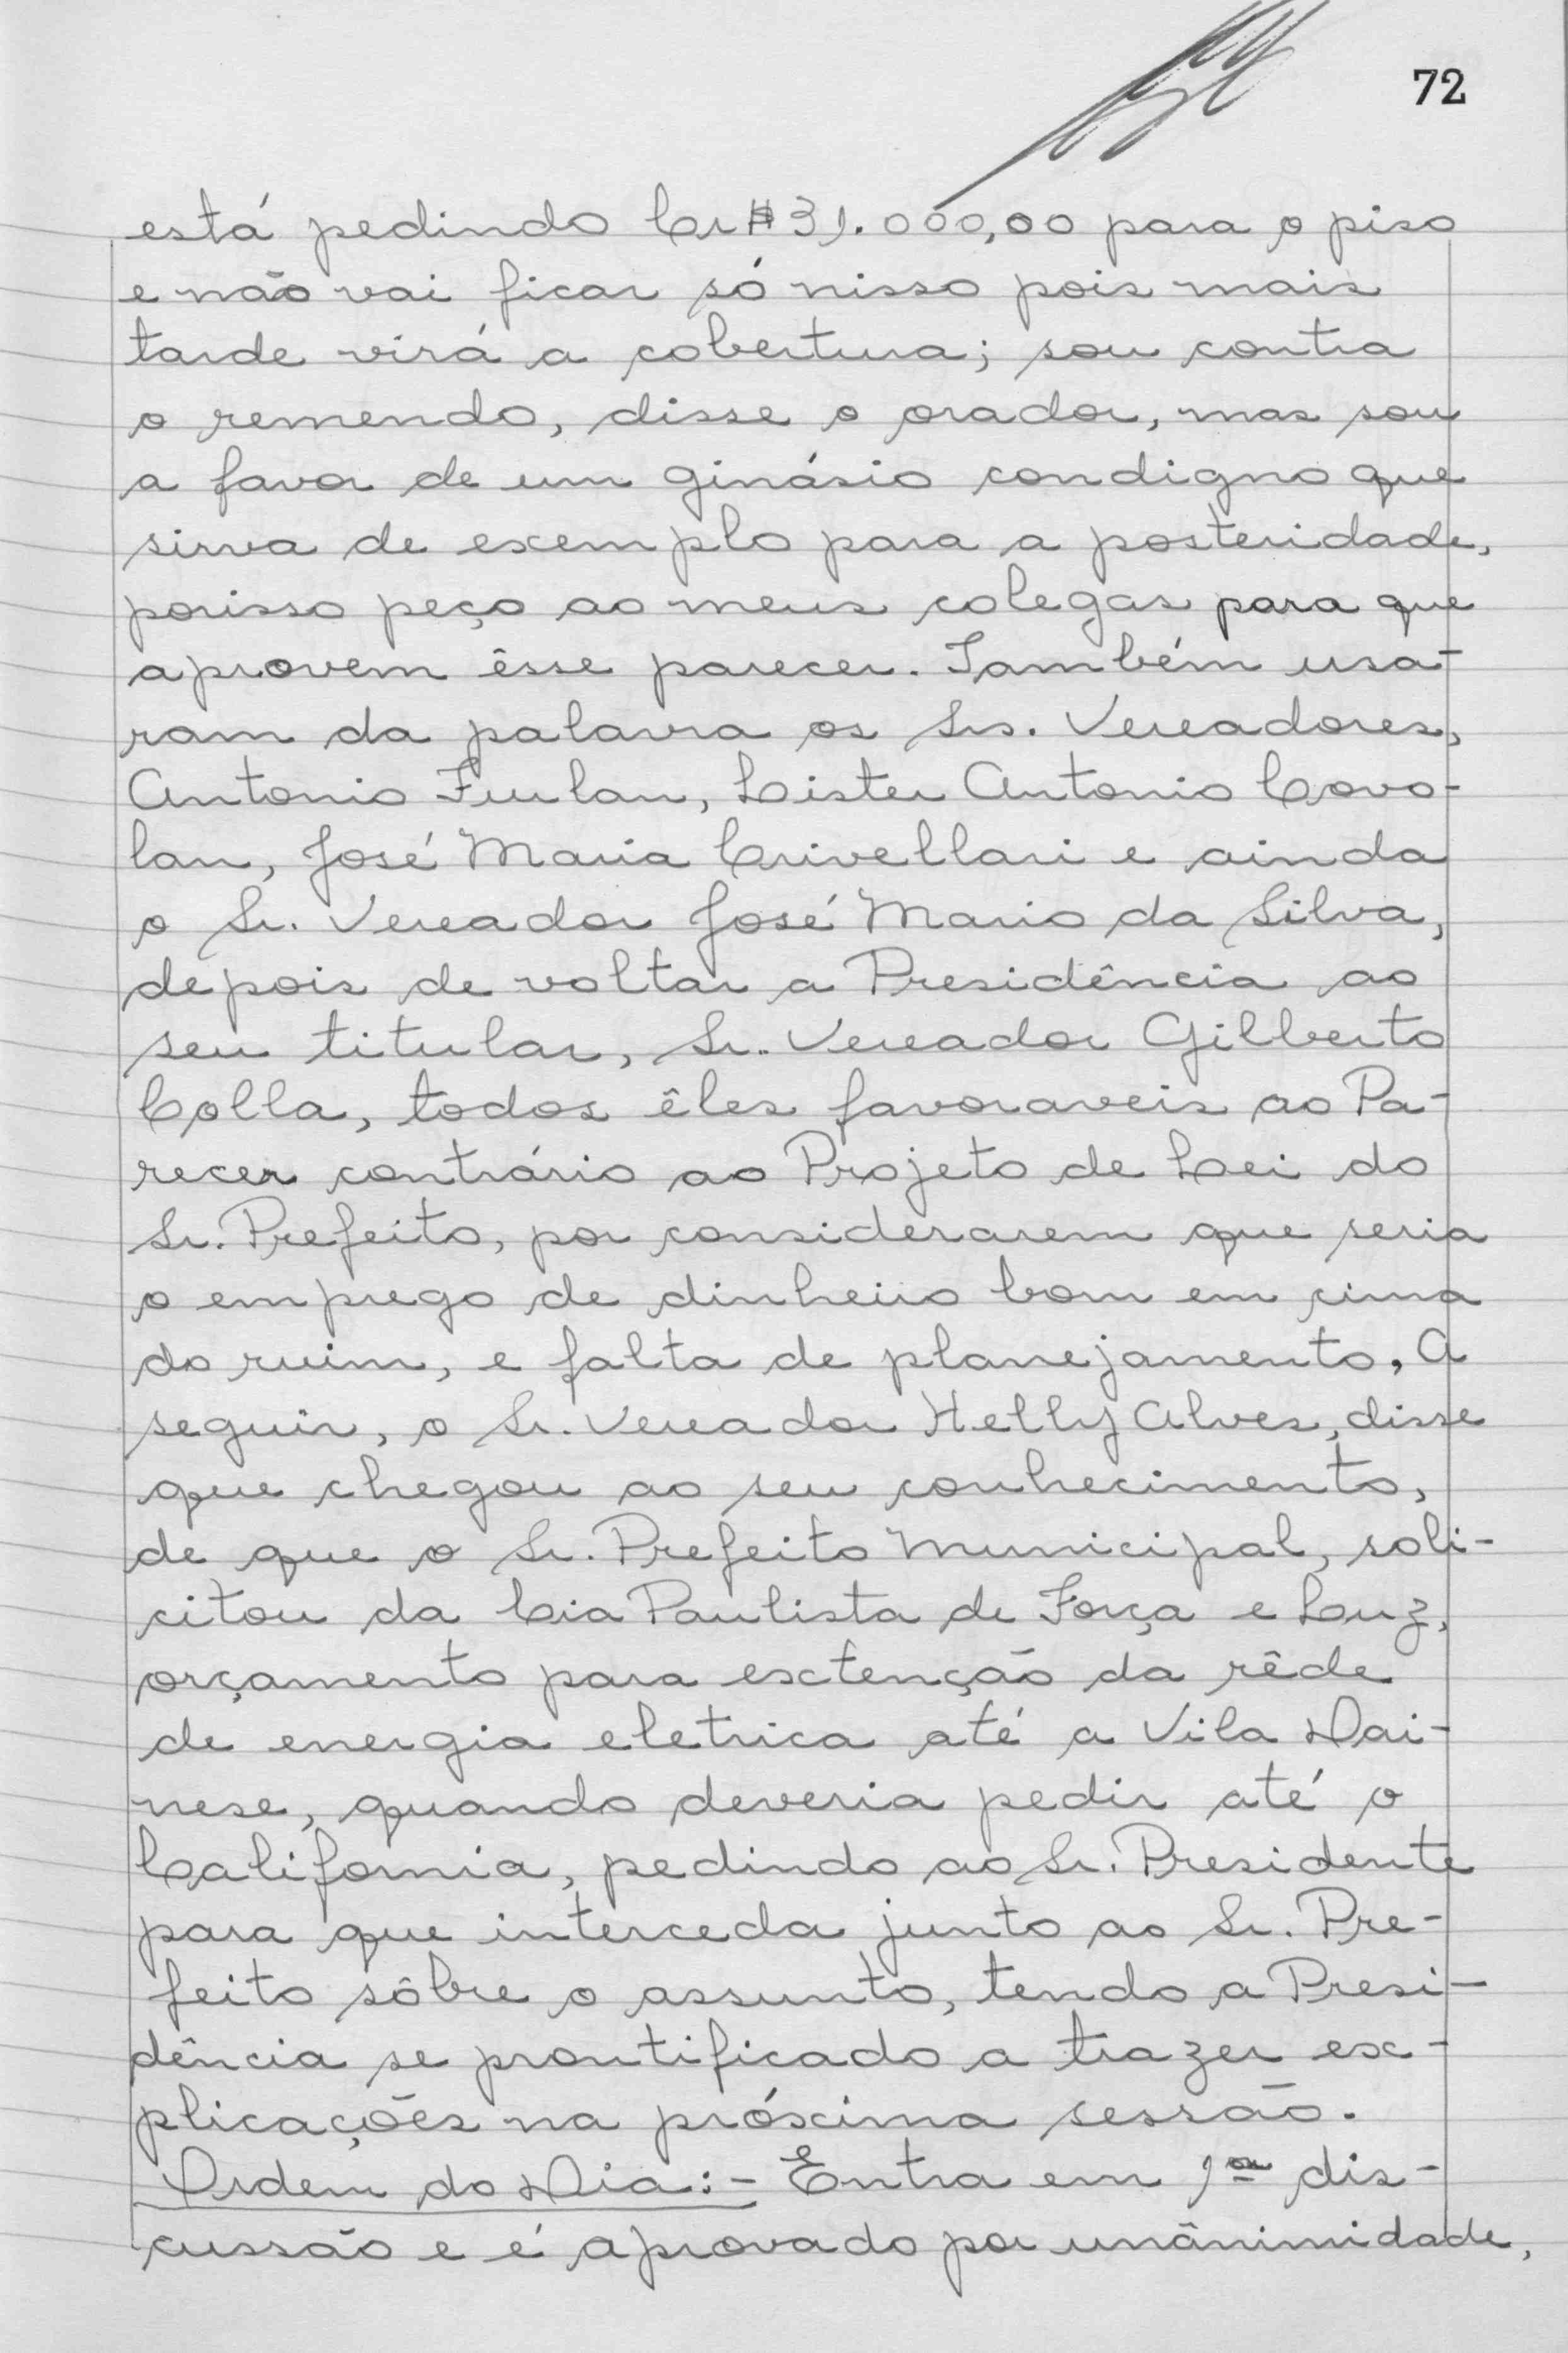 72
está pedindo Cr$31.000,00 para o piso
e não vai ficar só nisso pois mais
tarde virá a cobertura; sou contra
o remendo, disse o orador, mas sou
a favor de um ginásio condigno que
sirva de exemplo para a posteridade,
porisso peço ao meus colegas para que
aprovem êsse parecer. Também usa-
ram da palavra os Srs. Vereadores,
Antonio Furlan, Lister Antonio Covo-
lan, José Maria Crivellari e ainda
o Sr. Vereador José Mario da Silva,
depois de voltar a Presidência ao
seu titular, Sr. Vereador Gilberto
Colla, todos êles favoraveis ao Pa-
recer contrário ao Projeto de Lei do
Sr. Prefeito, por considerarem que seria
o emprego de dinheiro bom em cima
do ruim, e falta de planejamento, A
seguir, o Sr. Vereador Helly Alves, disse
que chegou ao seu conhecimento,
de que o Sr. Prefeito Municipal, soli-
citou da Cia Paulista de Força e Luz,
orçamento para extenção da rêde
de energia eletrica até a Vila Dai-
nese, quando deveria pedir até o
California, pedindo ao Sr. Presidente
para que interceda junto ao Sr. Pre-
feito sôbre o assunto, tendo a Presi-
dência se prontificado a trazer ex-
plicações na próxima sessão.
Ordem do Dia:- Entra em 1ª dis-
cussão e é aprovado por unânimidade,